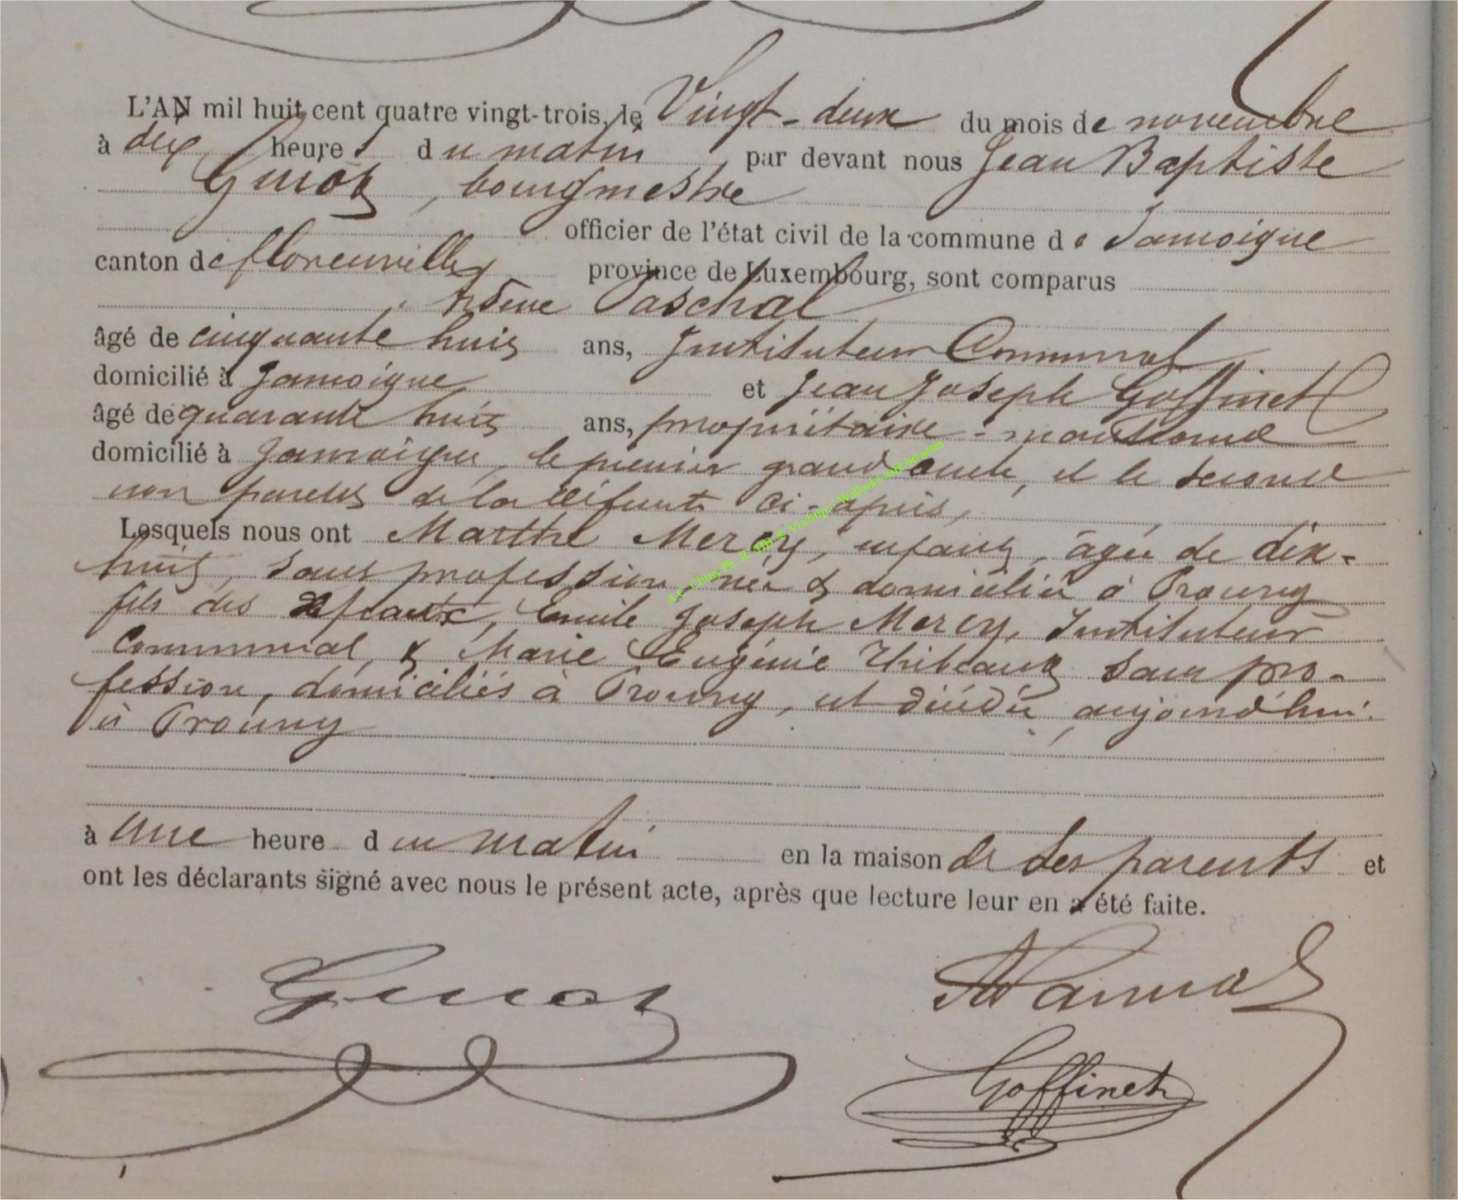 L'AN mil huit cent quatre vingt-trois, le Vingt-deux du mois de novembre
à dix heures du matin par devant nous Jean Baptiste
Guioz, bourgmestre
officier de l'état civil de la commune de Jamoigne
canton de florenville province de Luxembourg, sont comparus
Arsène Paschal
âgé de cinquante huit ans, Instituteur Communal
domicilié à Jamoigne et Jean Joseph Goffinet
âgé de quarante huit ans, propriétaire
domicilié à Jamoigne, le premier grand oncle, et le second
non parent de la défunte ci-après,
Lesquels nous ont Marthe Mercy, enfant, âgée de dix-
huit, sans profession, née & domiciliée à Prouvy
fils des Emile Joseph Mercy, Instituteur
Communal & Marie Eugénie Thibeaux sans pro-
fession, domiciliés à Prouvy, est décédée aujourd'hui
à Prouvy
à une heure du matin en la maison de ses parents et
ont les déclarants signé avec nous le présent acte, après que lecture leur en a été faite.
Guioz
Goffinet